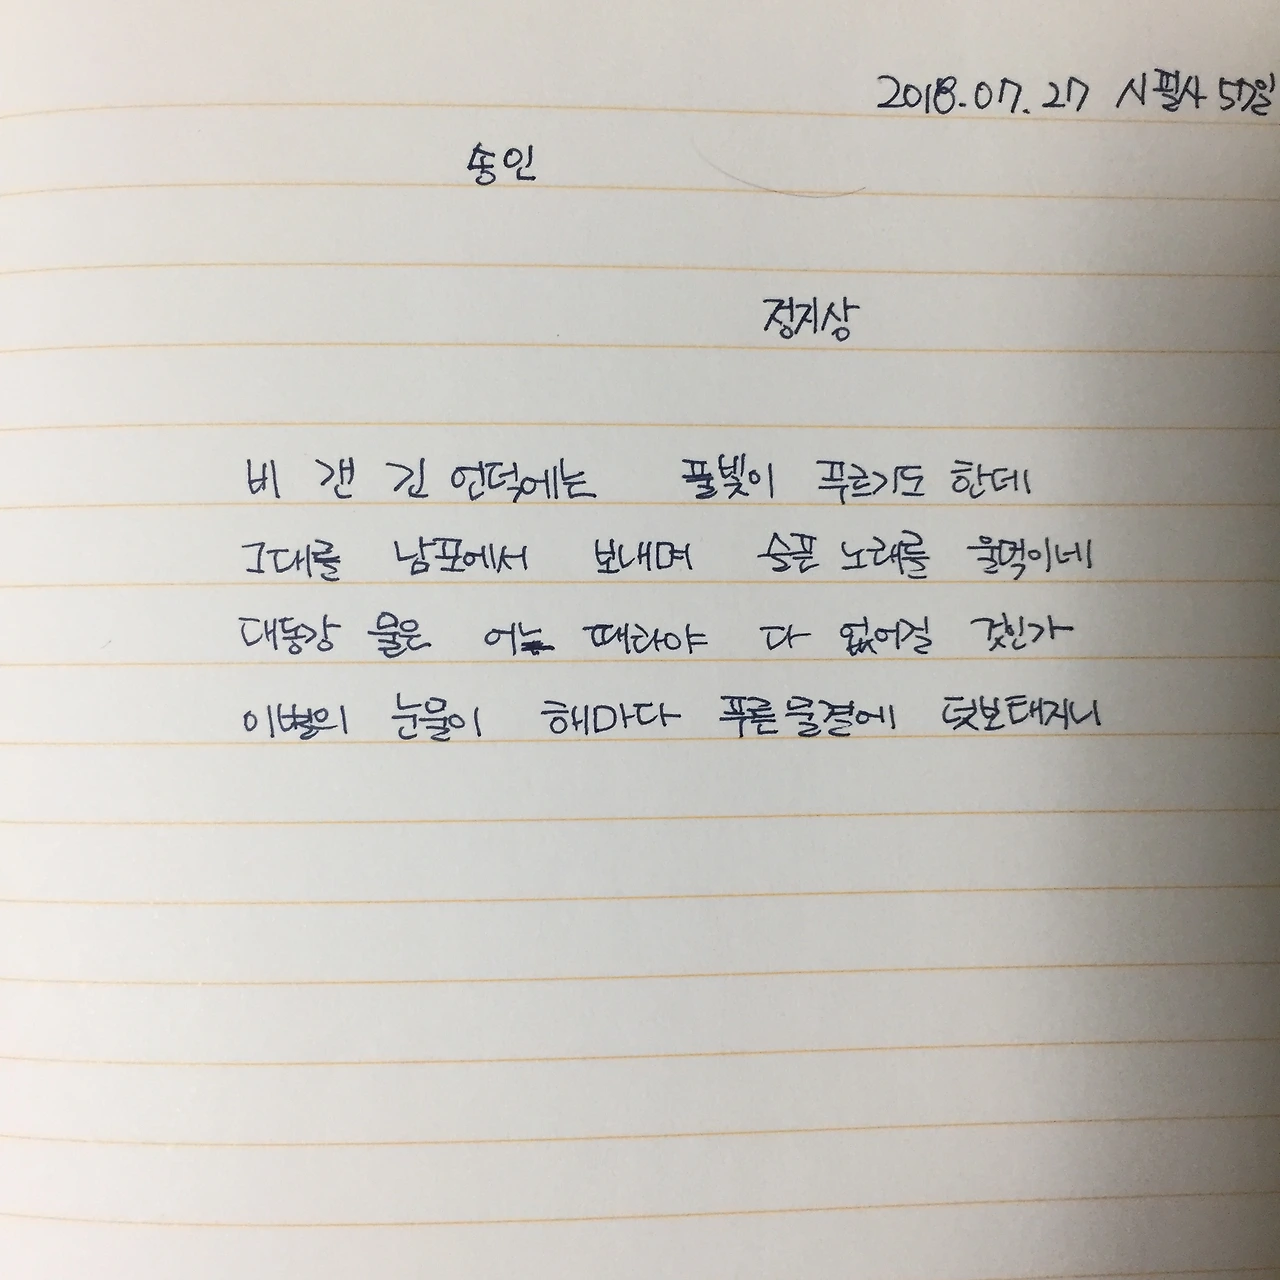 2018.07.27 시필사 57일
송인
정지상
비 갠 긴 언덕에는 풀빛이 푸르기도 한데
그대를 남포에서 보내며 슬픈 노래를 울먹이네
대동강 물은 어느 때라야 다 없어질 것인가
이별의 눈물이 해마다 푸른 물결에 덧보태지니